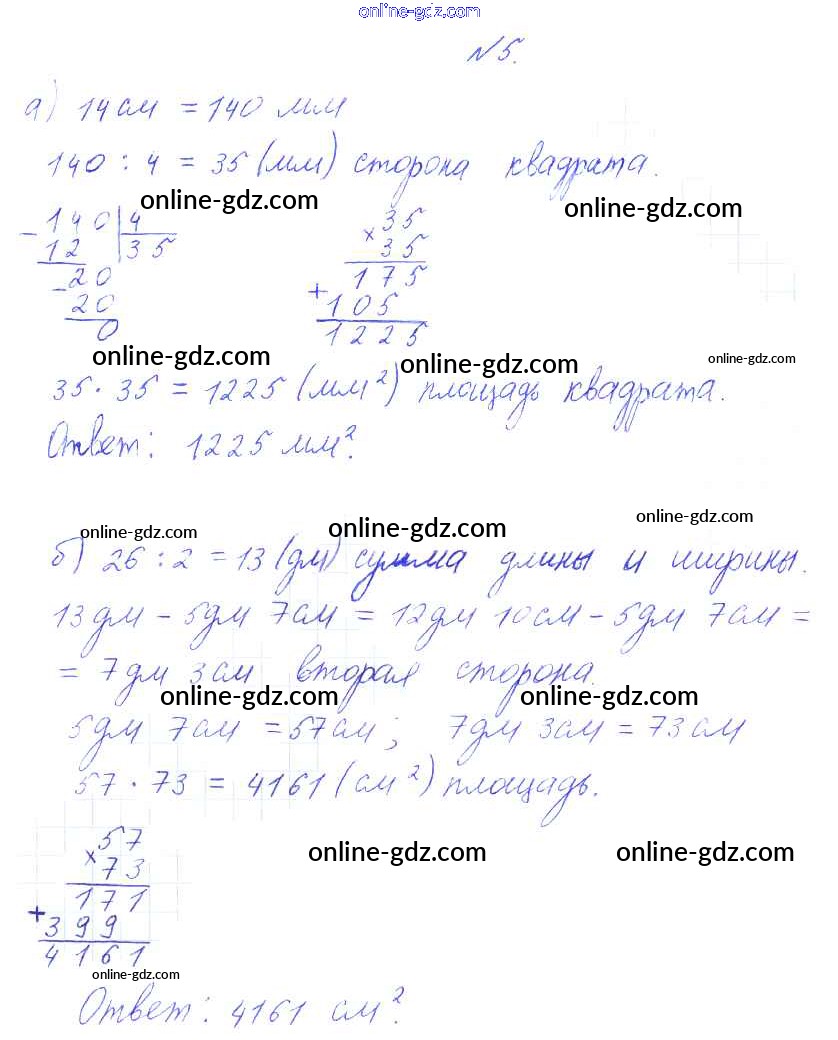 online-gdz.com
№5.
а) 14 см = 140 мм
140 : 4 = 35 (мм) сторона квадрата.
online-gdz.com online-gdz.com
- 140 | 4
12 35
- 20
20
0
× 35
35
175
+ 105
1225
online-gdz.com online-gdz.com online-gdz.com
35 · 35 = 1225 (мм²) площадь квадрата.
Ответ: 1225 мм².
online-gdz.com online-gdz.com online-gdz.com
б) 26 : 2 = 13 (дм) сумма длины и ширины.
13дм – 5дм 7см = 12дм 10см – 5дм 7см =
= 7дм 3см вторая сторона.
online-gdz.com online-gdz.com
5дм 7см = 57см; 7дм 3см = 73см
57 · 73 = 4161 (см²) площадь.
× 57
73
171
+ 399
4161
online-gdz.com online-gdz.com
online-gdz.com
Ответ: 4161 см².